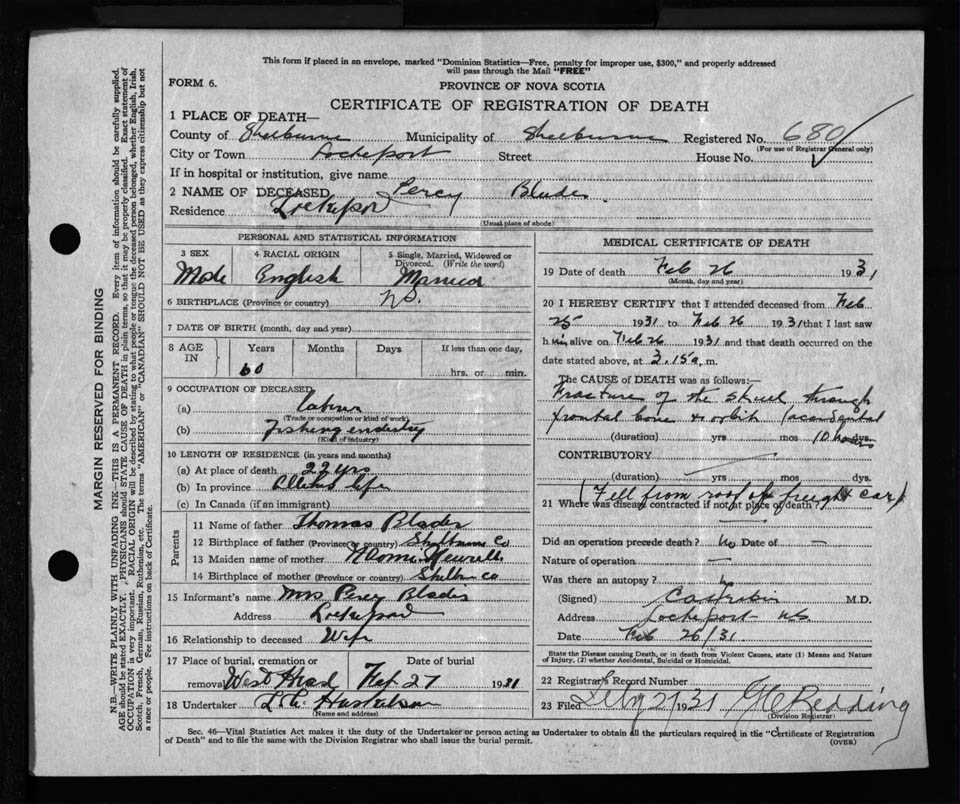 This form if placed in an envelope, marked "Dominion Statistics—Free, penalty for improper use, $300," and properly addressed
will pass through the Mail "FREE"
FORM 6.
PROVINCE OF NOVA SCOTIA
CERTIFICATE OF REGISTRATION OF DEATH
1 PLACE OF DEATH—
County of Shelburne Municipality of Shelburne Registered No. 680
(For use of Registrar General only)
City or Town Lockeport Street House No.
If in hospital or institution, give name
2 NAME OF DECEASED Percy Blades
Residence Lockeport
(Usual place of abode)
PERSONAL AND STATISTICAL INFORMATION
3 SEX 4 RACIAL ORIGIN 5 Single, Married, Widowed or
Divorced. (Write the word)
Male English Married
6 BIRTHPLACE (Province or country) N.S.
7 DATE OF BIRTH (month, day and year)
8 AGE IN Years Months Days If less than one day,
60 hrs. or min.
9 OCCUPATION OF DECEASED
(a) labour
(Trade or occupation or kind of work)
(b) Fishing industry
(Kind of industry)
10 LENGTH OF RESIDENCE (in years and months)
(a) At place of death 22 yrs
(b) In province All his life
(c) In Canada (if an immigrant)
Parents
11 Name of father Thomas Blades
12 Birthplace of father (Province or country) Shelburne Co
13 Maiden name of mother
14 Birthplace of mother (Province or country) Shelburne Co
15 Informant's name Mrs Percy Blades
Address Lockeport
16 Relationship to deceased Wife
17 Place of burial, cremation or Date of burial
removal West Head Feb 27 1931
18 Undertaker
(Name and address)
MEDICAL CERTIFICATE OF DEATH
19 Date of death Feb 26 1931
(Month, day and year)
20 I HEREBY CERTIFY that I attended deceased from Feb
25 1931 to Feb 26 1931 that I last saw
him alive on Feb 26 1931 and that death occurred on the
date stated above, at 3.15 a. m.
The CAUSE OF DEATH was as follows:—
Fracture of the skull through
frontal bone & orbit (accidental
(duration) yrs mos 10 hours dys.
CONTRIBUTORY
(duration) yrs. mos. dys.
(Fell from roof of freight car)
21 Where was disease contracted if not at place of death?
Did an operation precede death? No Date of —
Nature of operation —
Was there an autopsy?
(Signed) M.D.
Address Lockeport NS
Date Feb 26/31
State the Disease causing Death, or in death from Violent Causes, state (1) Means and Nature
of Injury, (2) whether Accidental, Suicidal or Homicidal.
22 Registrar's Record Number
23 Filed Feby 27 1931 Redding
(Division Registrar)
Sec. 46—Vital Statistics Act makes it the duty of the Undertaker or person acting as Undertaker to obtain all the particulars required in the "Certificate of Registration
of Death" and to file the same with the Division Registrar who shall issue the burial permit. (OVER)
MARGIN RESERVED FOR BINDING
N.B.—WRITE PLAINLY WITH UNFADING INK—THIS IS A PERMANENT RECORD. Every item of information should be carefully supplied.
AGE should be stated EXACTLY. PHYSICIANS should STATE CAUSE OF DEATH in plain terms, so that it may be properly classified. Exact statement of
OCCUPATION is very important. RACIAL ORIGIN will be described by stating to what people or tongue the deceased person belonged, whether English, Irish,
Scotch, French, German, Russian, Ruthenian, etc. The terms "AMERICAN" or "CANADIAN" SHOULD NOT BE USED as they express citizenship but not
a race or people. Fee instructions on back of Certificate.